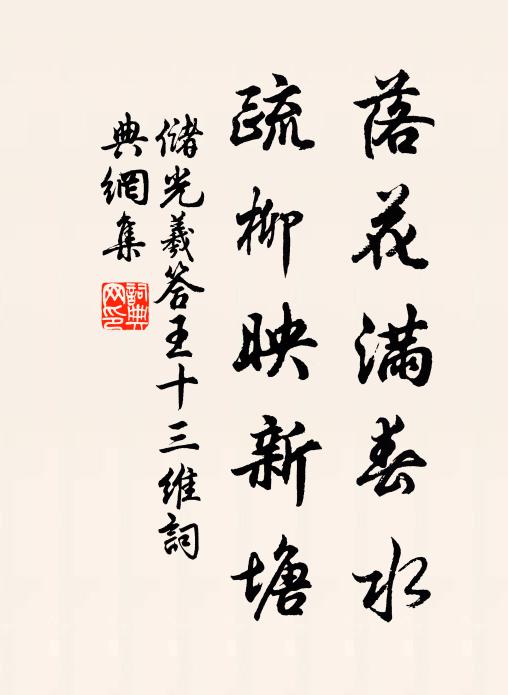 落花滿春水
疏柳映新塘
儲光羲答王十三維詞
典網集
詞典网印